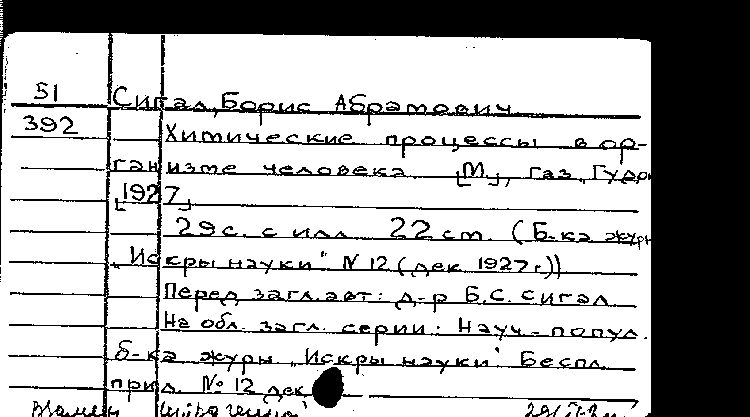 51 Сигал, Борис Абрамович
392 Химические процессы в ор-
ганизме человека [М.], газ. Гудо
[1927]
29 с. с илл. 22 см. (Б-ка журн
„Искры науки" № 12 (дек 1927 г.))
Перед загл. авт: д-р Б.С. Сигал
На обл. загл. серии: Науч-попул.
б-ка журн „Искры науки" Беспл.
прил. № 12 дек